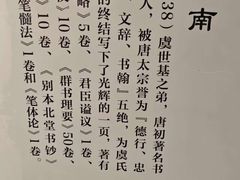 南
38）虞世基之弟，唐初著名书
人，被唐太宗誉为“德行、忠
、文辞、书翰”五绝，为虞氏
的终结写下了光辉的一页，著有
略》5卷、《君臣谥议》1卷、
》10卷、《群书理要》50卷、
》10卷、《别本北堂书钞》
笔髓法》1卷和《笔体论》1卷。